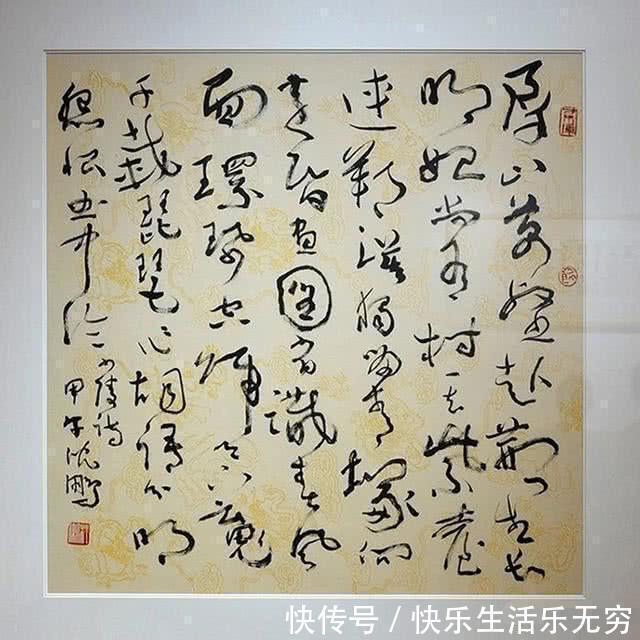 群山万壑赴荆门生长
明妃尚有村一去紫台
连朔漠独留青冢向
黄昏画图省识春风
面环珮空归魂
千载琵琶作胡语分明
怨恨曲中论
少陵诗
甲午沈鹏
快传号 / 快乐生活乐无穷